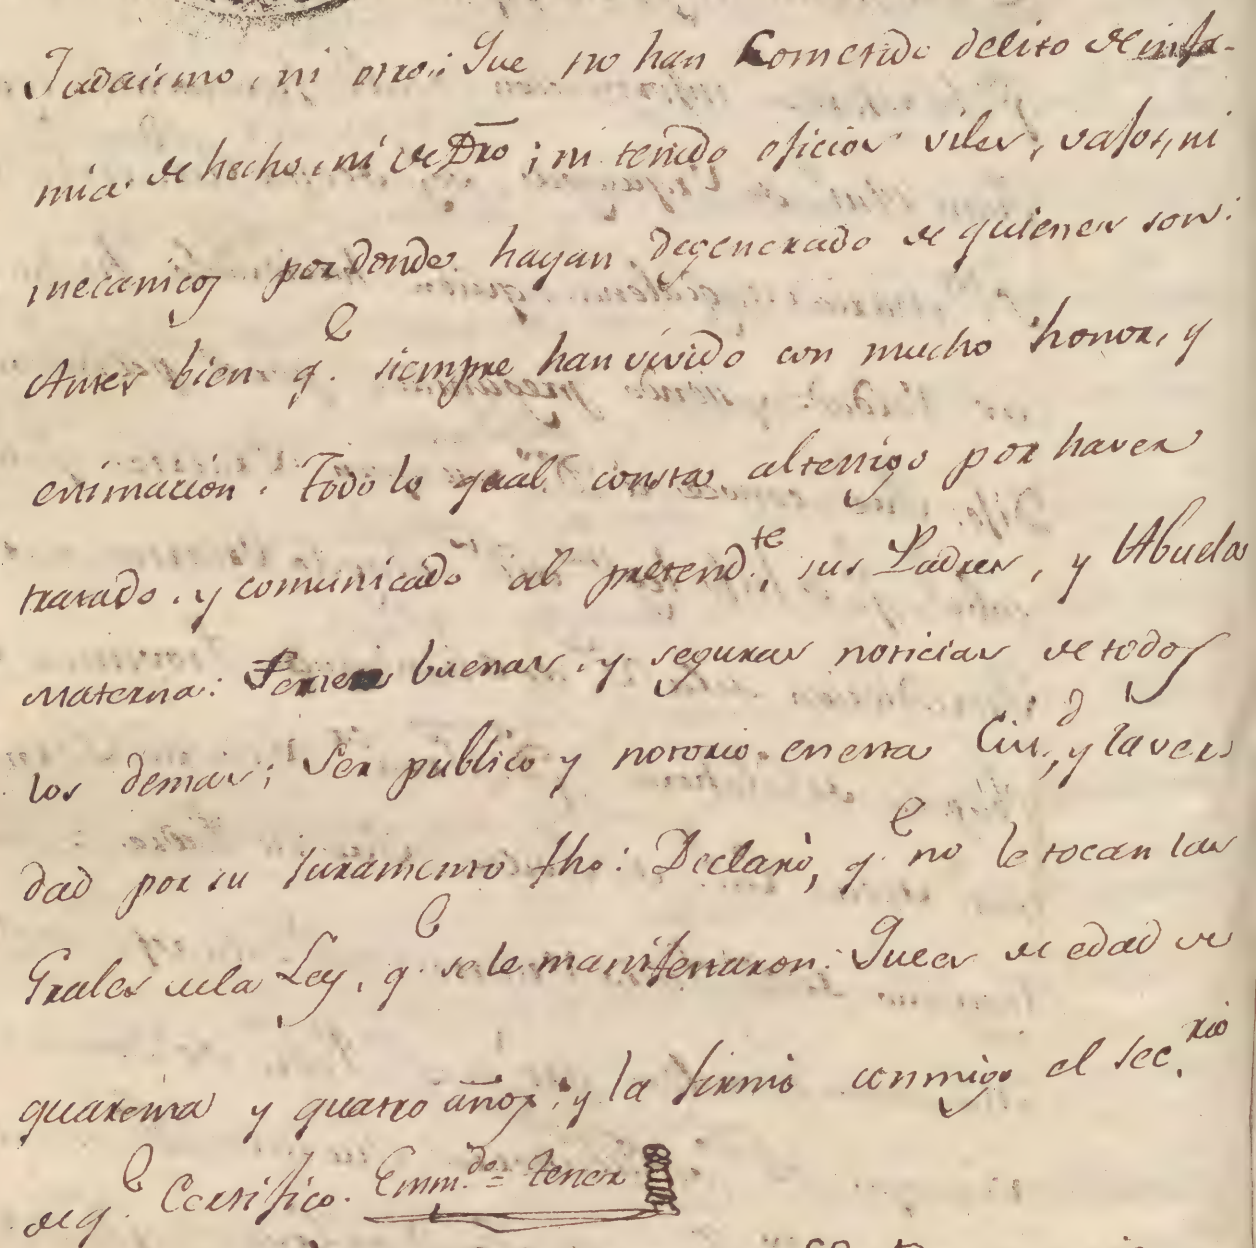 Judaismo, ni otro: Que no han Cometido delito de infa-
mia de hecho, ni de Dro; ni tenido oficios viles, vajos, ni
mecanicos por donde hayan degenerado de quienes son:
Antes bien q.e siempre han vivido con mucho honor, y
estimacion. Todo lo qual consta al testigo por haver
tratado, y comunicado al pretend.te, sus Padres, y Abuela
Materna: Tener buenas, y seguras noticias de todos
los demas; Ser publico y notorio en esta Ciu.d, y la ver
dad por su Juramento fho: Declaró, q.e no le tocan las
Grales de la Ley, q.e se le manifestaron: Que es de edad de
quarenta y quatro años; y la firmó conmigo el sec.rio
de q.e Certifico. Enm.do = tener